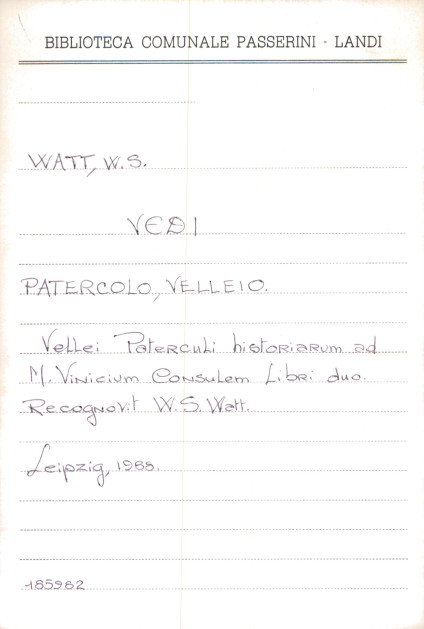 BIBLIOTECA COMUNALE PASSERINI - LANDI
WATT, W.S.
VEDI
PATERCOLO, VELLEIO.
Vellei Paterculi historiarum ad
M. Vinicium Consulem Libri duo.
Recognovit W.S. Watt.
Leipzig, 1988.
185982